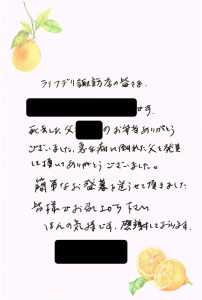 ライフデリ諏訪店の皆さま
です。
死去した父 のお弁当ありがとう
ございました。急な病に倒れた父を発見
して頂いてありがとうございました。
簡単なお菓子を送らせて頂きました
皆様でお召し上がり下さい
ほんの気持ちです。感謝しております。